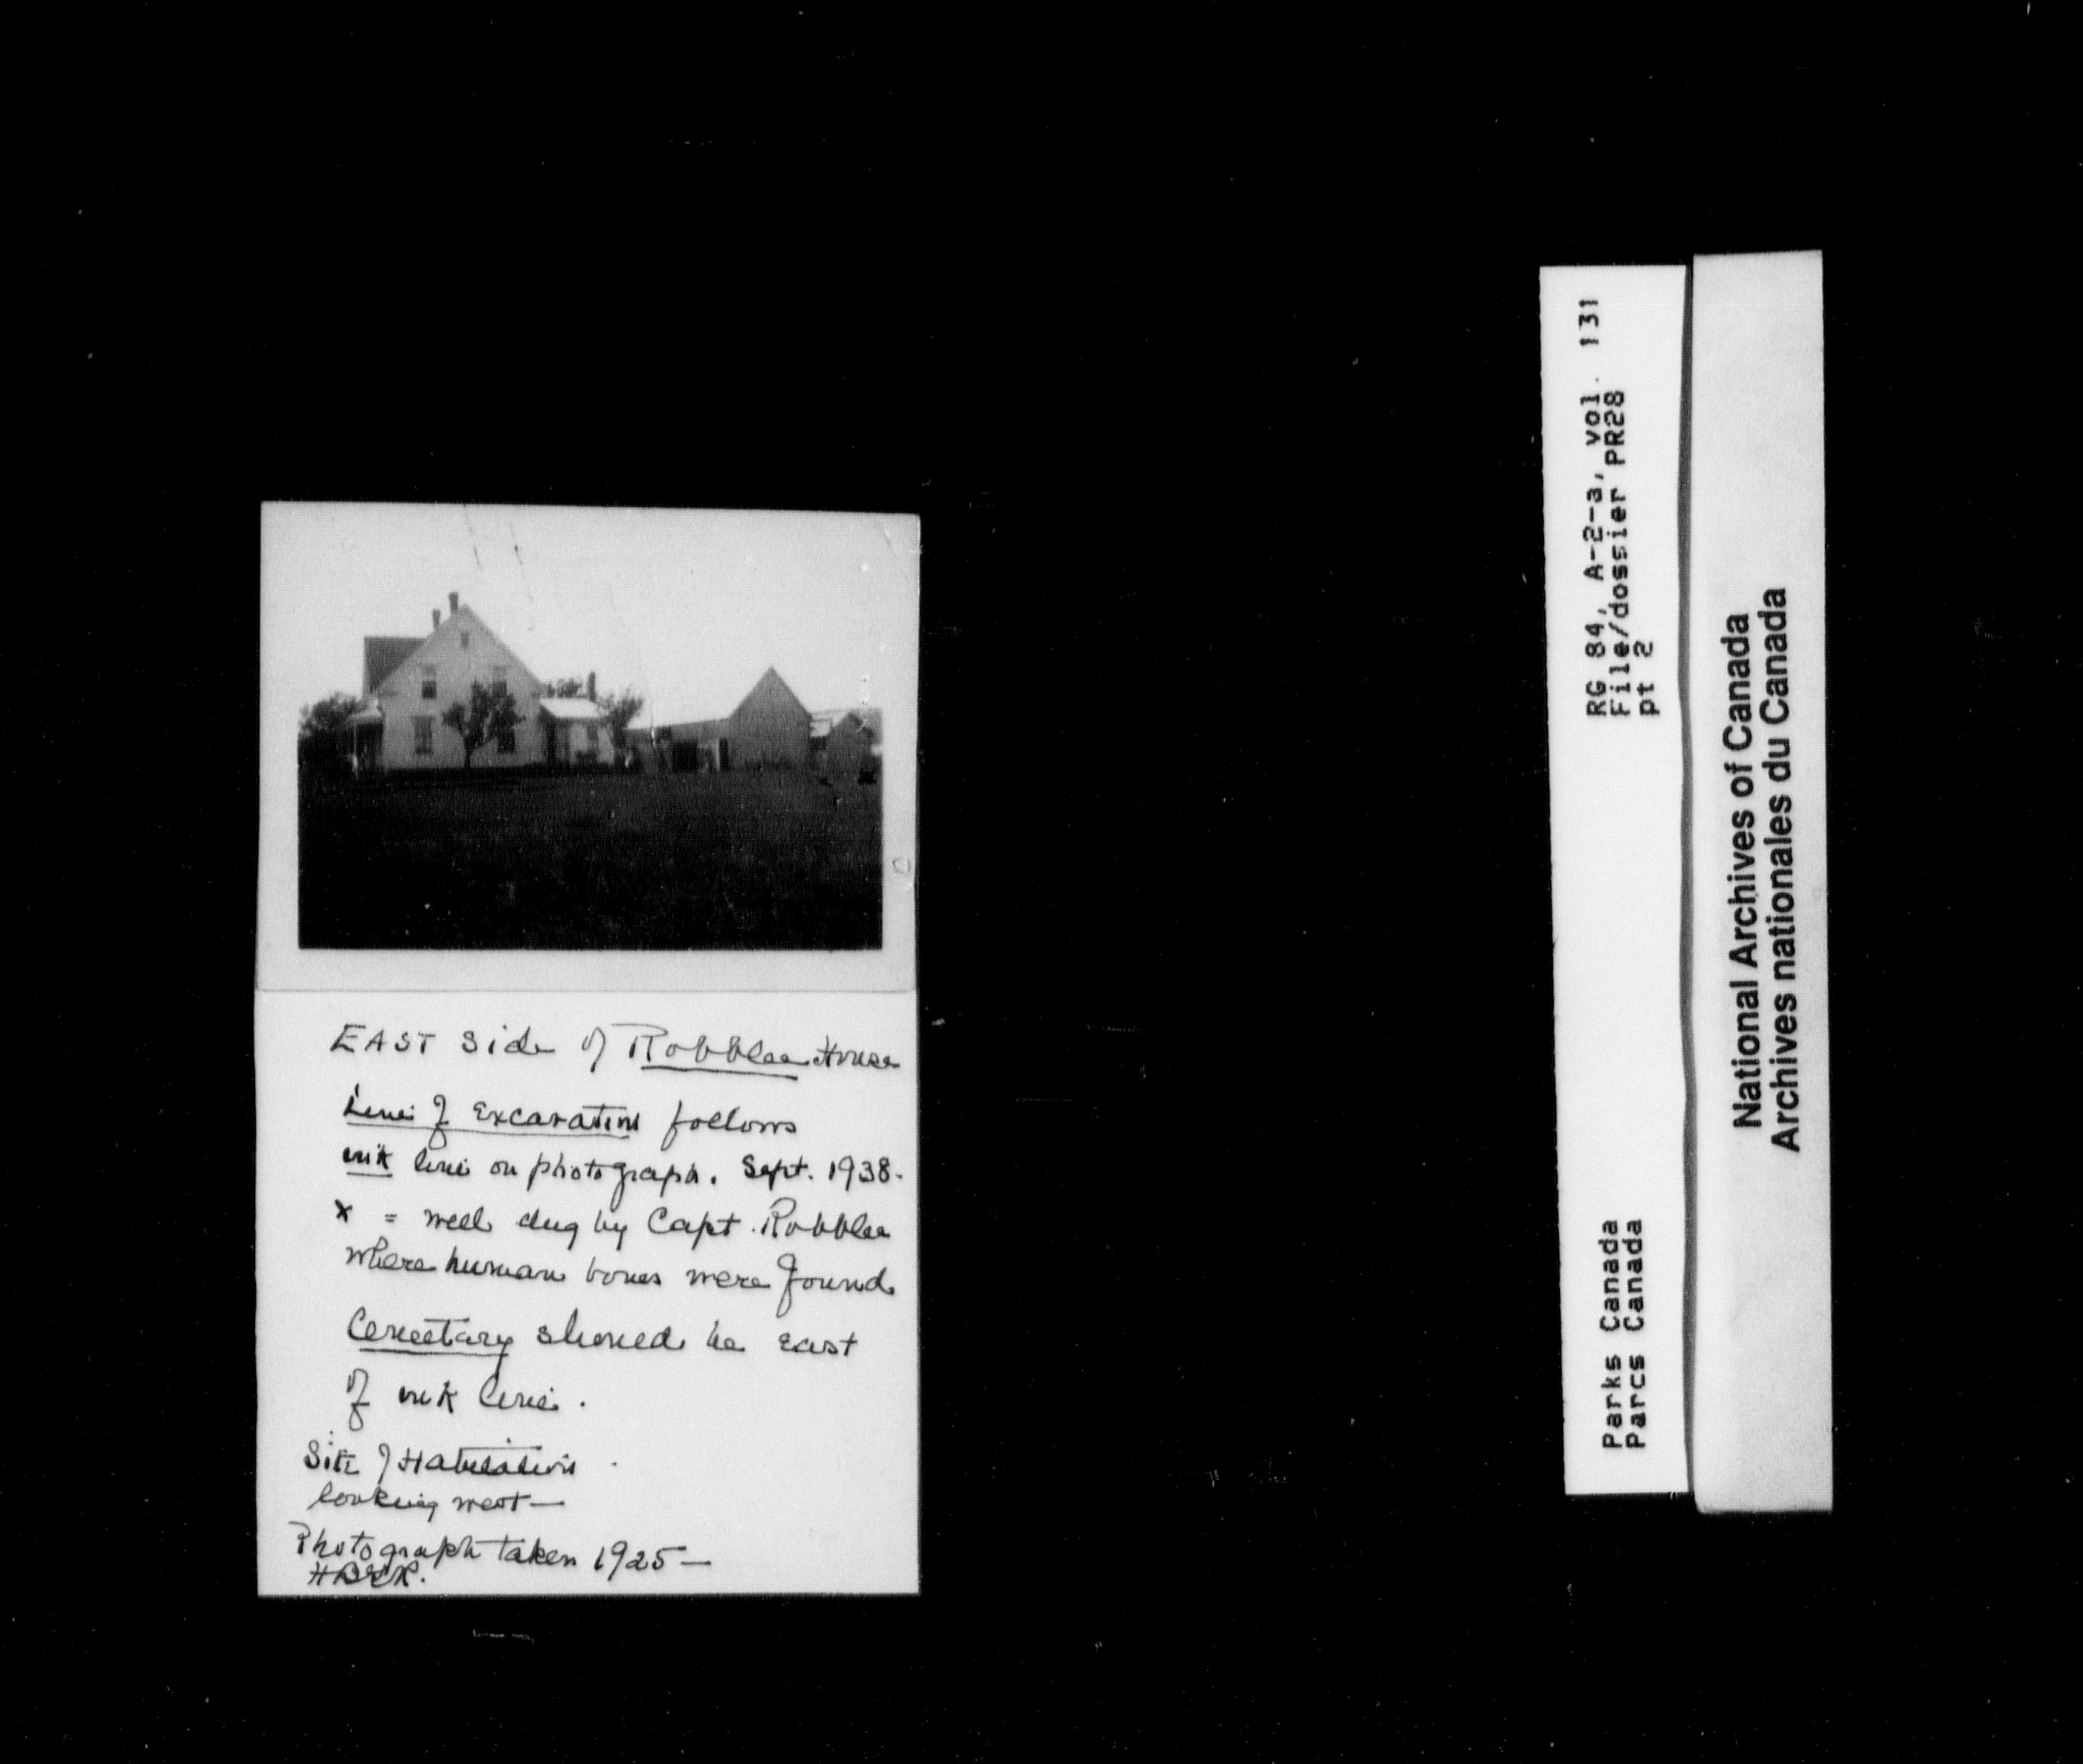 EAST Side of Robblee House
Line of Excavation follows
ink line on photograph. Sept. 1938.
x = well dug by Capt. Robblee
where human bones were found
Cemetary should be east
of ink line.
Site of Habitation
looking west—
Photograph taken 1925—
RG 84, A-2-a, vol. 131
File/dossier PR28
pt 2
Parks Canada
Parcs Canada
National Archives of Canada
Archives nationales du Canada